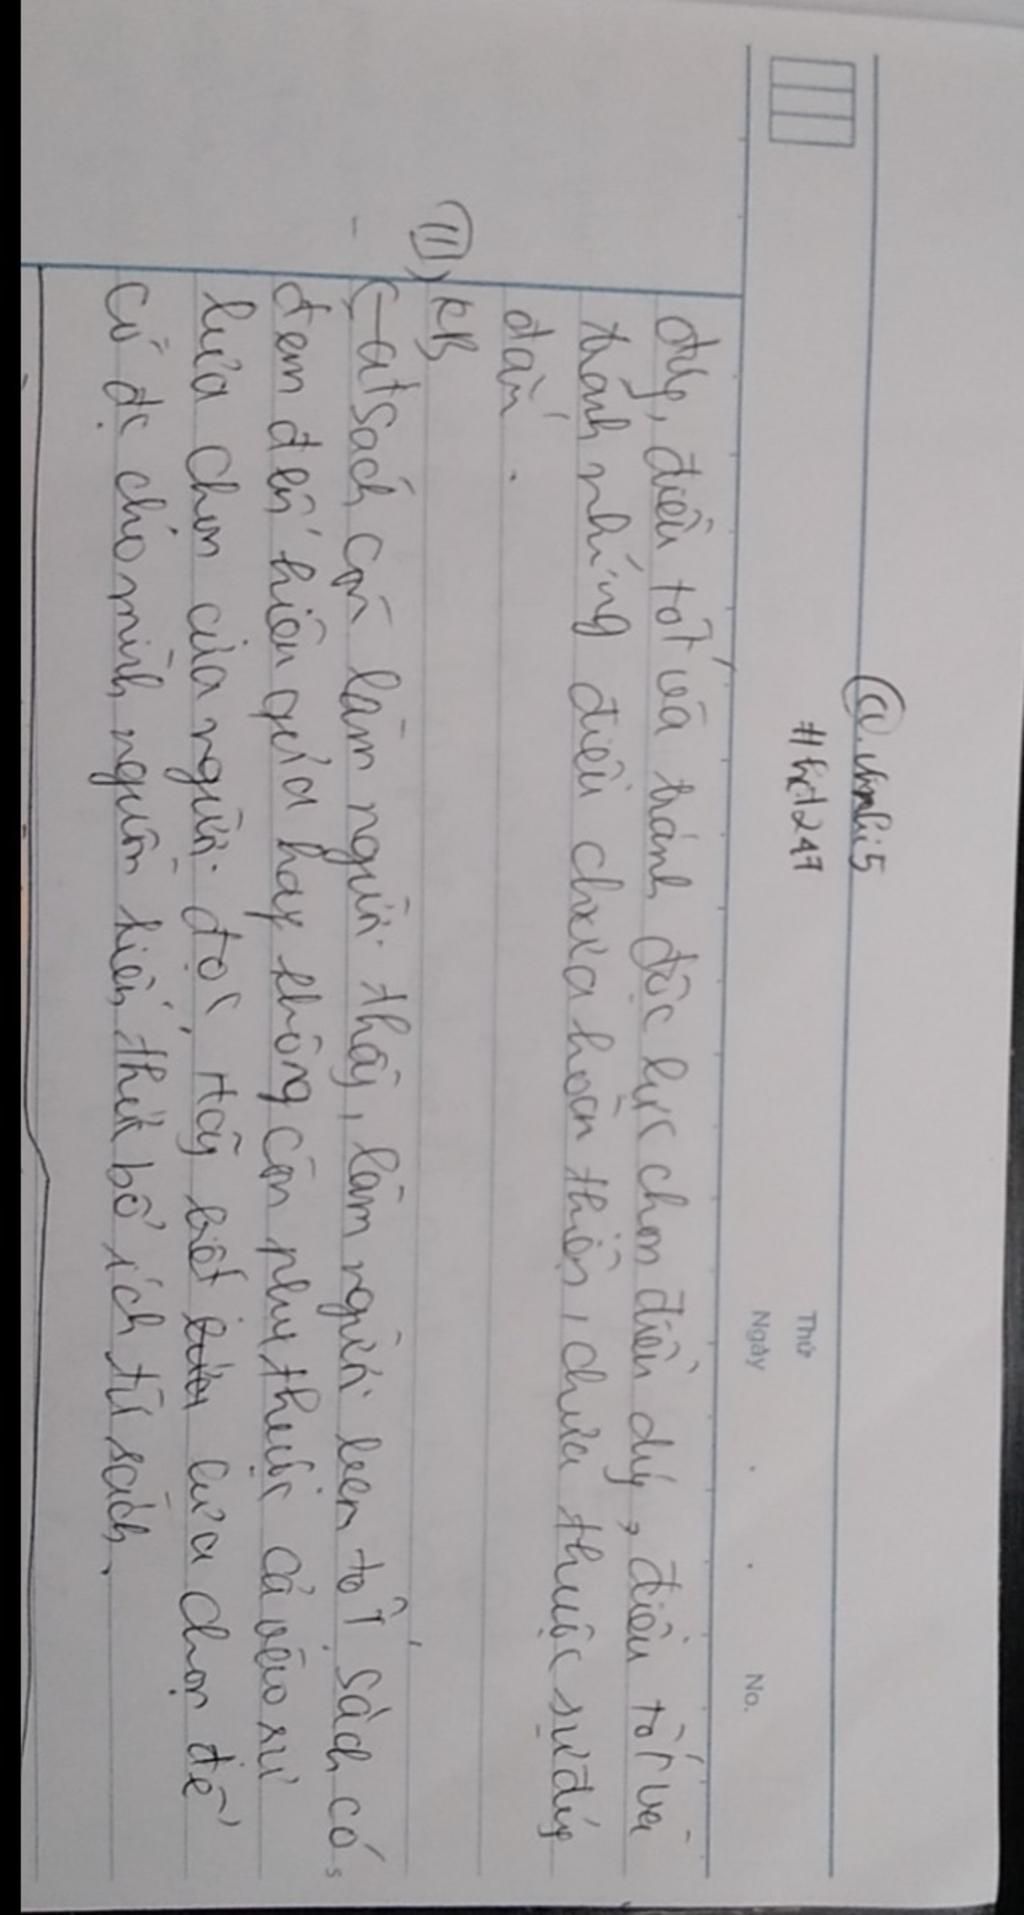 @.vmnhi5
#hht247
Thứ
Ngày . . No.
đúng, điều tốt và tránh được lực chọn điều đúng, điều tốt và
thành những điều chưa hoàn thiện, chưa thuộc sự đúng
đắn.
III) KB
- sách còn làm người thầy, làm người bạn tốt sách có
đem đến hiệu quả hay không còn phụ thuộc cả vào sự
lựa chọn của người đọc, Hãy biết lựa chọn để
có đc cho mình nguồn kiến thức bổ ích từ sách.